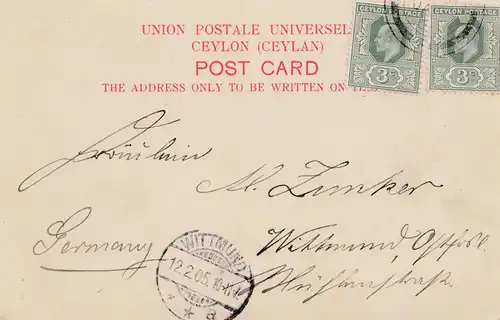 UNION POSTALE UNIVERSEL
CEYLON (CEYLAN)
POST CARD
THE ADDRESS ONLY TO BE WRITTEN ON THIS
CEYLON POSTAGE
3c
CEYLON POSTAGE
3c
Fräulein
M. Zunker
Germany
Wittmund, Ostfrsl.
Mühlenstraße
WITTMUND
12.2.05. 10-11V.
* * a